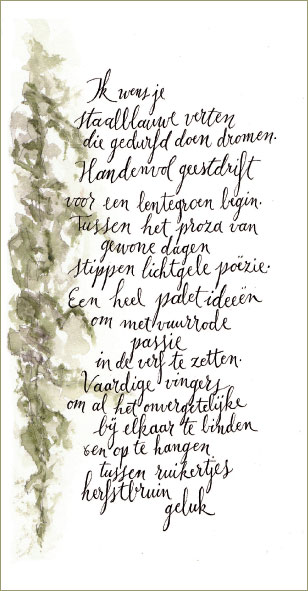 Ik wens je
staalblauwe verten
die gedurfd doen dromen.
Handenvol geestdrift
voor een lentegroen begin.
Tussen het proza van
gewone dagen
stippen lichtgele poëzie.
Een heel palet ideeën
om met vuurrode
passie
in de verf te zetten.
Vaardige vingers
om al het onvergetelijke
bij elkaar te binden
en op te hangen
tussen ruikertjes
herfstbruin
geluk